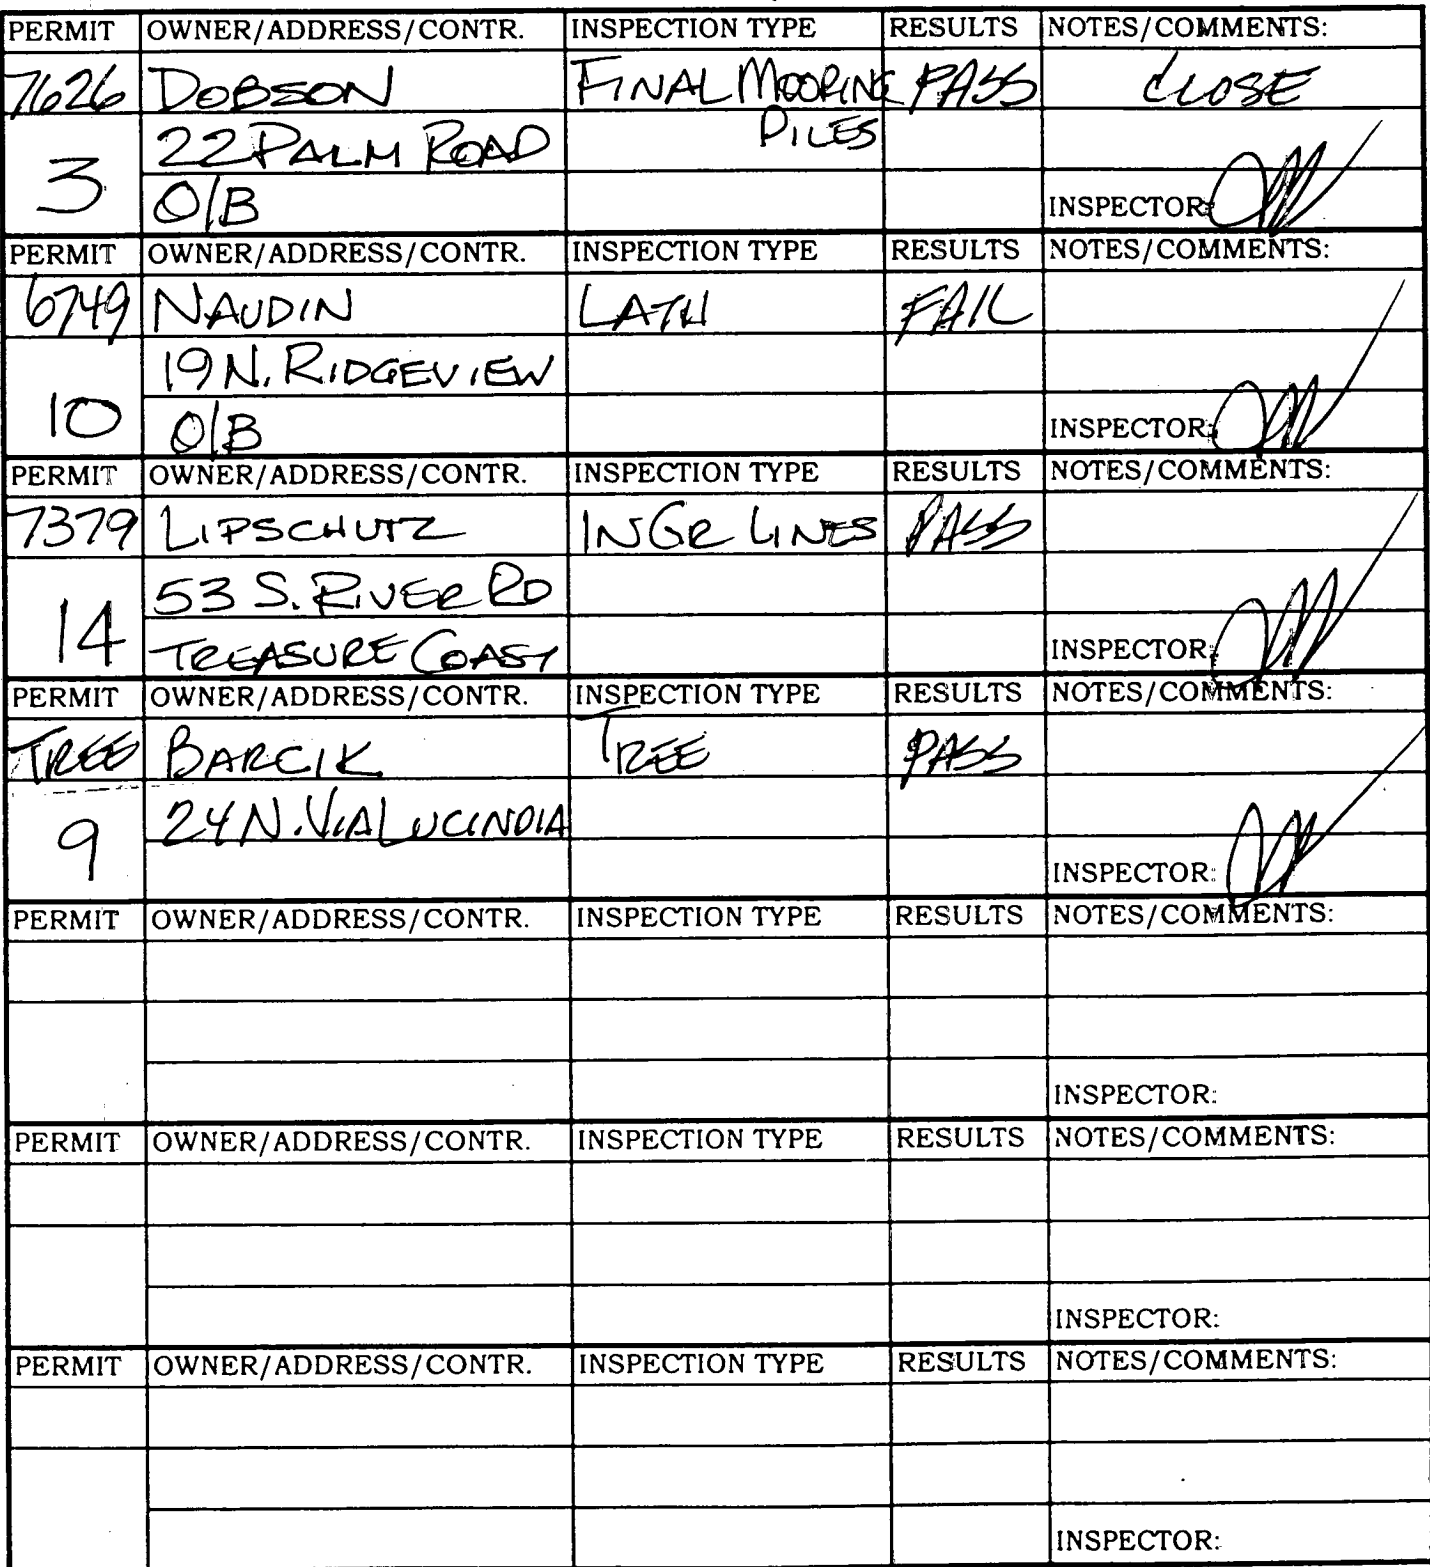 PERMIT OWNER/ADDRESS/CONTR. INSPECTION TYPE RESULTS NOTES/COMMENTS:
7626 DOBSON FINAL MOORING PASS CLOSE
22 PALM ROAD PILES
3 O/B INSPECTOR:
PERMIT OWNER/ADDRESS/CONTR. INSPECTION TYPE RESULTS NOTES/COMMENTS:
6749 NAUDIN LATH FAIL
19 N. RIDGEVIEW
10 O/B INSPECTOR:
PERMIT OWNER/ADDRESS/CONTR. INSPECTION TYPE RESULTS NOTES/COMMENTS:
7379 LIPSCHUTZ INGR LINES PASS
53 S. RIVER RD
14 TREASURE COAST INSPECTOR:
PERMIT OWNER/ADDRESS/CONTR. INSPECTION TYPE RESULTS NOTES/COMMENTS:
TREE BARCIK TREE PASS
24 N. VIA LUCINDIA
9 INSPECTOR:
PERMIT OWNER/ADDRESS/CONTR. INSPECTION TYPE RESULTS NOTES/COMMENTS:
INSPECTOR:
PERMIT OWNER/ADDRESS/CONTR. INSPECTION TYPE RESULTS NOTES/COMMENTS:
INSPECTOR:
PERMIT OWNER/ADDRESS/CONTR. INSPECTION TYPE RESULTS NOTES/COMMENTS:
INSPECTOR: